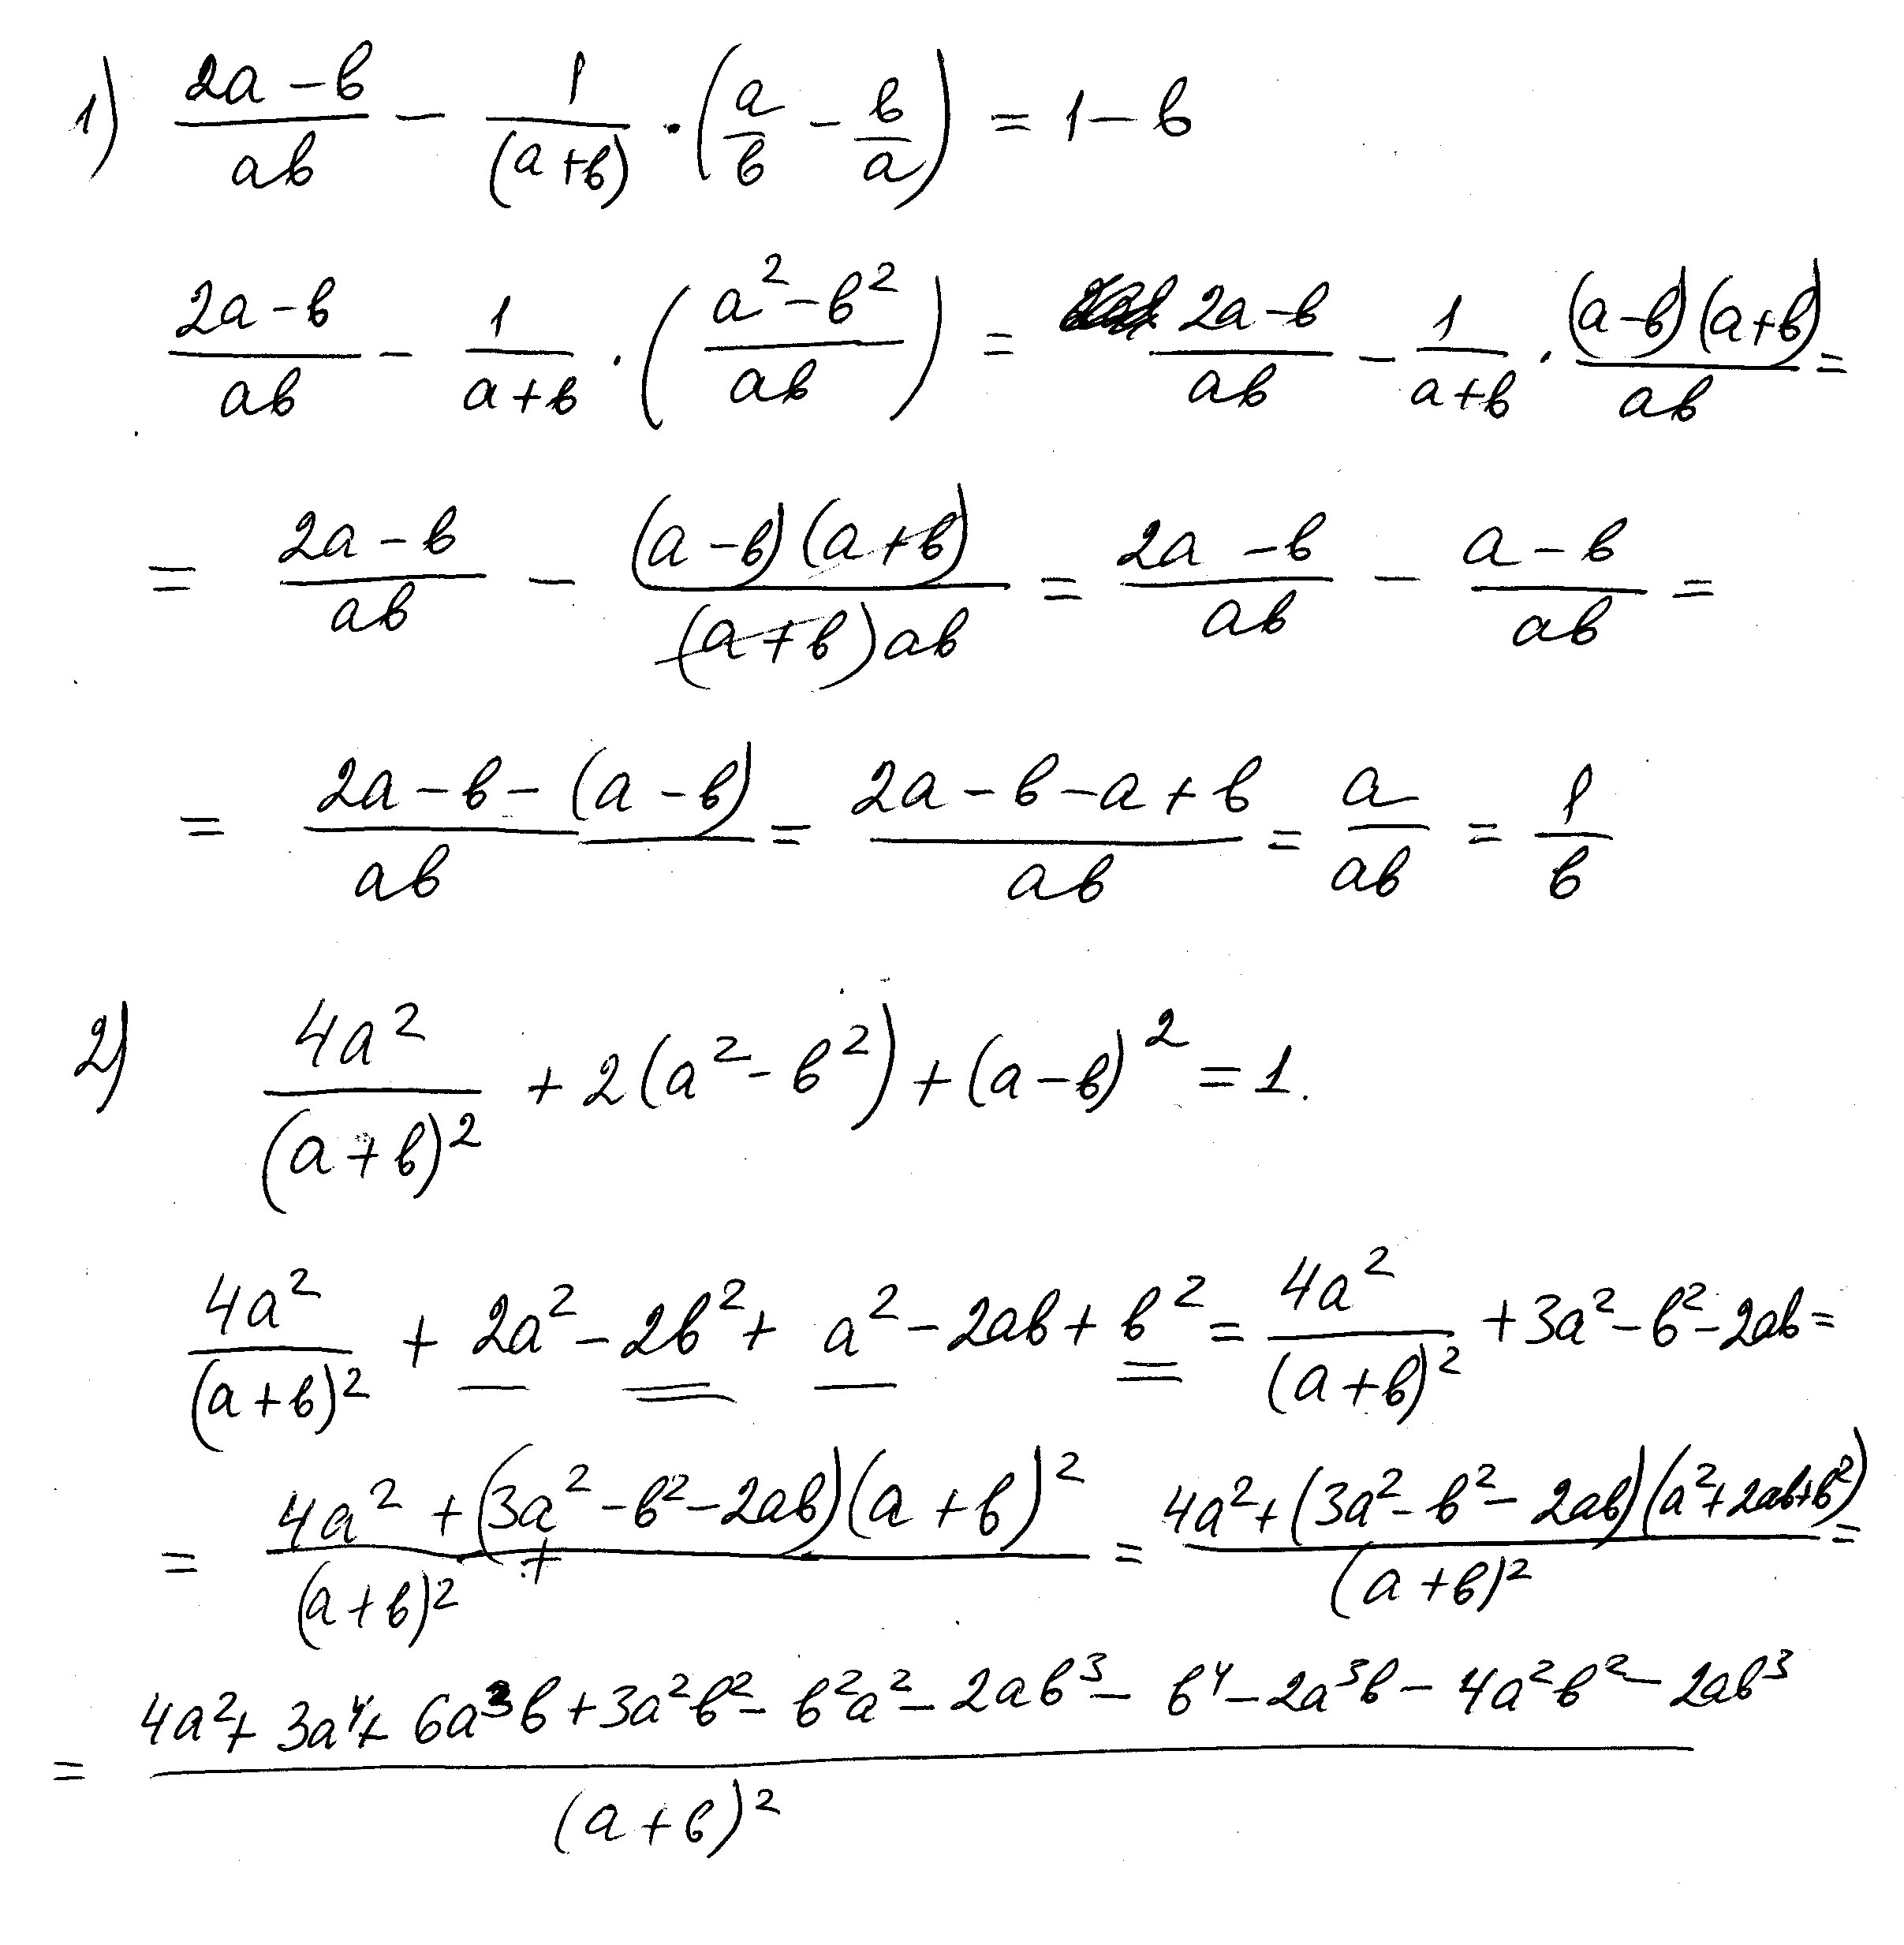 1) (2a-b)/(ab) - 1/((a+b)) · (a/b - b/a) = 1-b
(2a-b)/(ab) - 1/(a+b) · ((a²-b²)/(ab)) = (2a-b)/(ab) - 1/(a+b) · ((a-b)(a+b))/(ab) =
= (2a-b)/(ab) - ((a-b)(a+b))/((a+b)ab) = (2a-b)/(ab) - (a-b)/(ab) =
= (2a-b-(a-b))/(ab) = (2a-b-a+b)/(ab) = a/(ab) = 1/b
2) 4a²/(a+b)² + 2(a²-b²) + (a-b)² = 1.
4a²/(a+b)² + 2a² - 2b² + a² - 2ab + b² = 4a²/(a+b)² + 3a² - b² - 2ab =
= (4a² + (3a²-b²-2ab)(a+b)²)/(a+b)² = (4a² + (3a²-b²-2ab)(a²+2ab+b²))/(a+b)² =
= (4a² + 3a⁴ + 6a³b + 3a²b² - b²a² - 2ab³ - b⁴ - 2a³b - 4a²b² - 2ab³)/(a+b)²